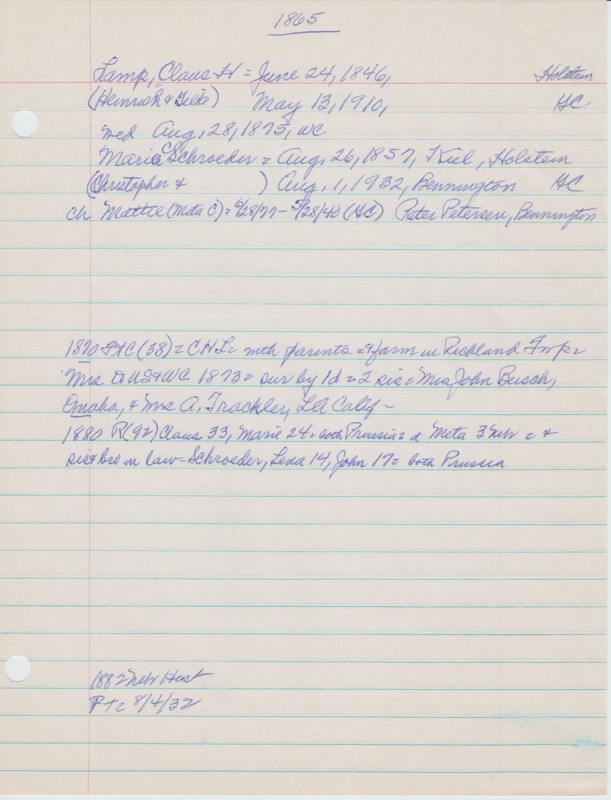 1865
Lamp, Claus H = June 24, 1846, Holstein
(Heinrich & Silke) May 13, 1910, HC
wed Aug, 28, 1875, WC
Maria C Schroeder = Aug, 26, 1857, Kiel, Holstein
(Christopher & ) Aug, 1, 1932, Bennington HC
ch Mattie (Meta C) = 6/28/77 - 5/28/40 (HC) Peter Petersen, Bennington
1870 (38) = C H L = with parents = farm in Richland Twp =
Mrs to US & WC 1873 = sur by 1 d = 2 sis = Mrs John Busch,
Omaha, & Mrs A, Trackler, LA Calif -
1880 R (92) Claus 33, Marie 24 = both Prussia = d Meta 3 Neb = &
sis & bro in law - Schroeder, Lena 14, John 17 = both Prussia
1882 Neb Hist
8/4/32